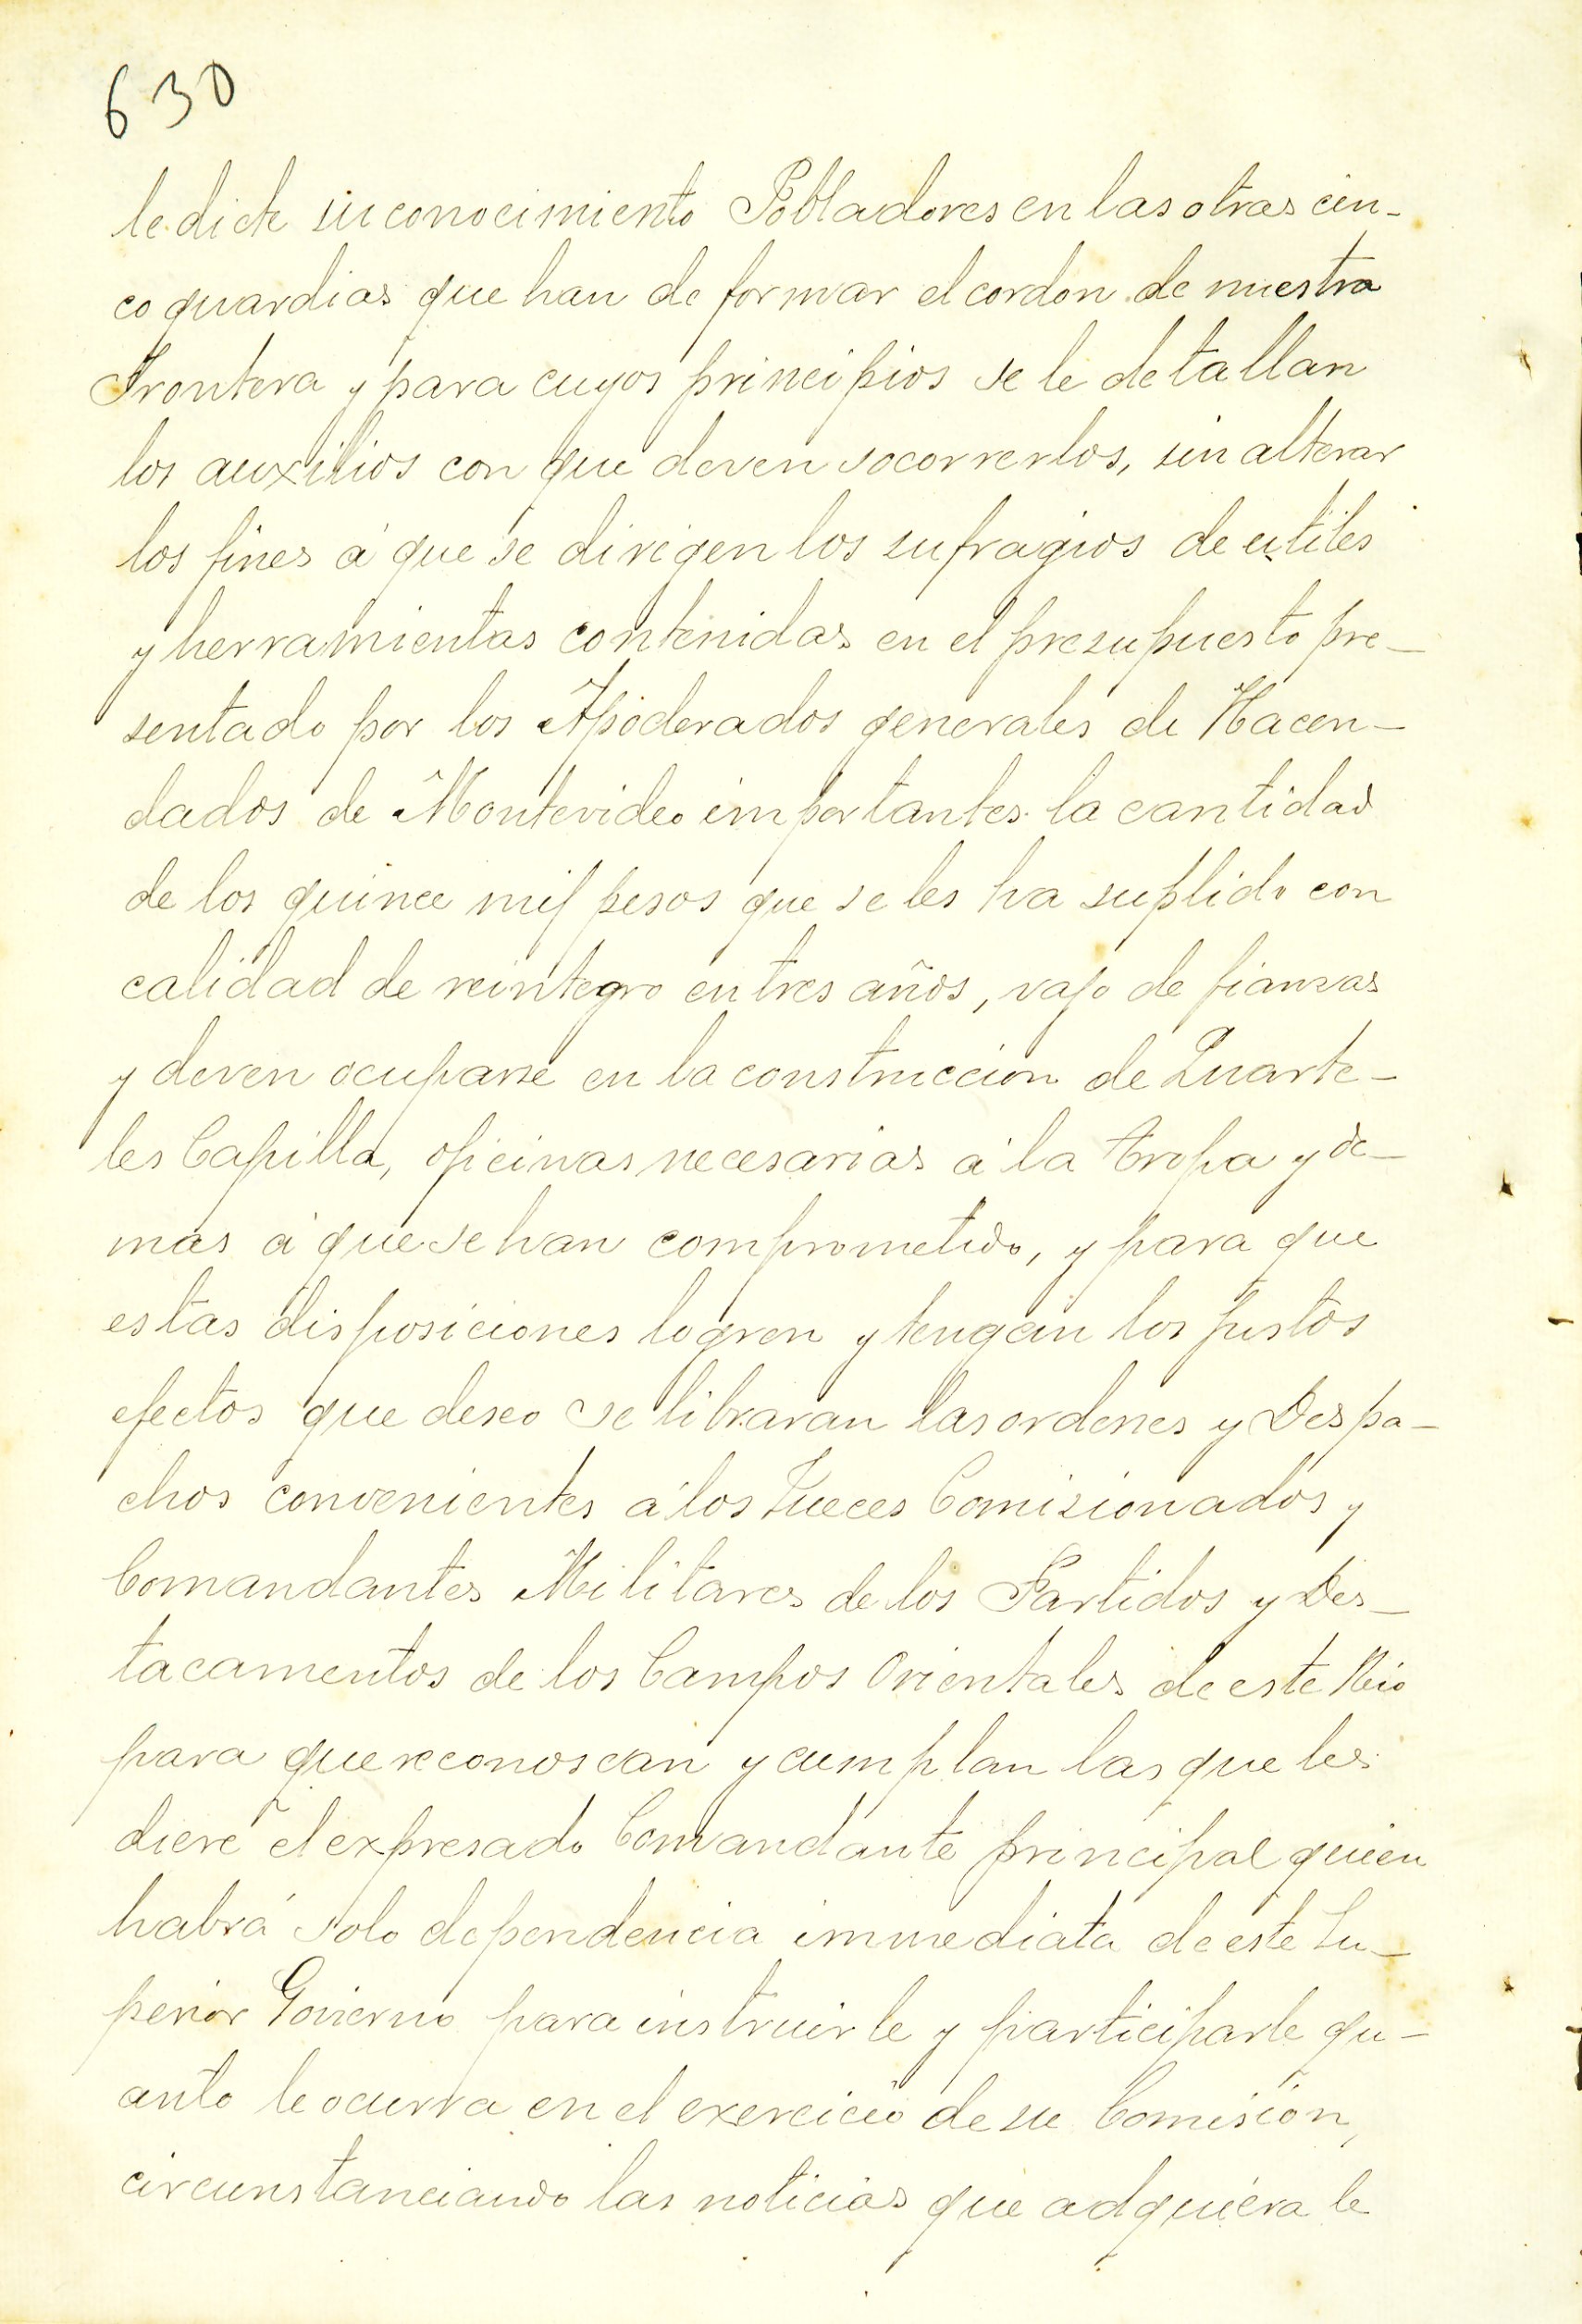 630
le dicte su conocimiento Pobladores en las otras cin-
co guardias que han de formar el cordon de nuestra
Frontera y para cuyos principios se le detallan
los auxilios con que deven socorrerlos, sin alterar
los fines á que se dirigen los sufragios de utiles
y herramientas contenidas en el presupuesto pre-
sentado por los Apoderados generales de Hacen-
dados de Montevideo importantes la cantidad
de los quince mil pesos que se les ha suplido con
calidad de reintegro en tres años, vajo de fianzas
y deven ocuparse en la construccion de Quarte-
les Capilla, oficinas necesarias á la tropa y de-
mas á que se han comprometido, y para que
estas disposiciones logren y tengan los justos
efectos que deseo se libraran las ordenes y Despa-
chos convenientes á los Jueces Comisionados y
Comandantes Militares de los Partidos y Des-
tacamentos de los Campos Orientales de este Rio
para que reconoscan y cumplan las que les
diere el expresado Comandante principal quien
habrá solo dependencia immediata de este Su-
perior Govierno para instruirle y participarle qu-
anto le ocurra en el exercicio de su Comision,
circunstanciando las noticias que adquiera le